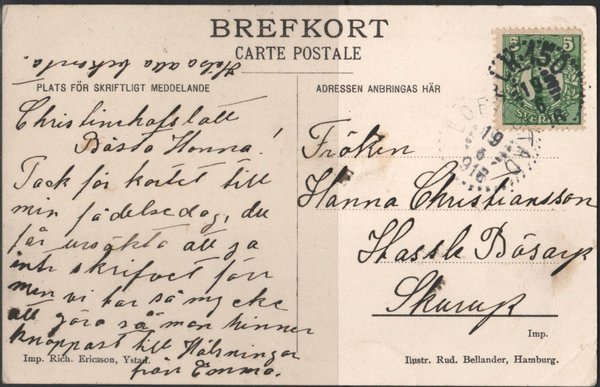 BREFKORT
CARTE POSTALE
Hälsa alla bekanta.
PLATS FÖR SKRIFTLIGT MEDDELANDE
ADRESSEN ANBRINGAS HÄR
Christinehofslätt
Bästa Hanna!
Tack för kortet till
min födelsedag, du
får ursäkta att ja
inte skrifvet förr
men vi har så mycke
att göra så man hinner
knappast till Hälsningar
från Emma.
Fröken
Hanna Christiansson
Hassle Bösarp
Skurup
5
SVERIGE
PKXP
19
5
916
Imp.
Imp. Rich. Ericsson, Ystad.
Illustr. Rud. Bellander, Hamburg.